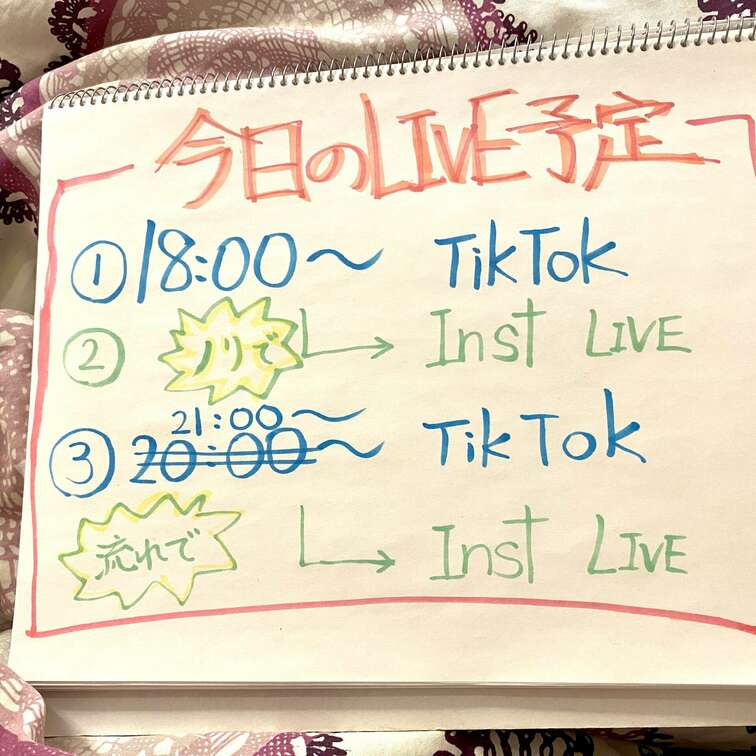 今日のLIVE予定
① 18:00〜 TikTok
② ノリで Inst LIVE
21:00〜
③ 20:00〜 TikTok
流れで Inst LIVE